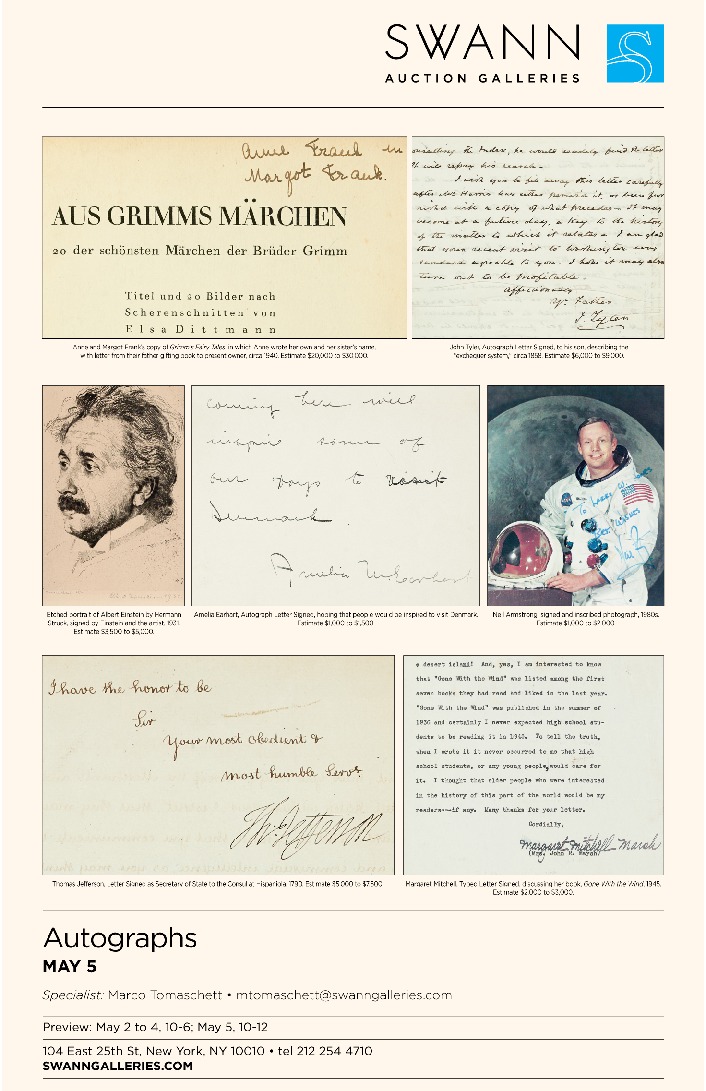 SWANN
AUCTION GALLERIES
Anne Frank
Margot Frank.
AUS GRIMMS MÄRCHEN
20 der schönsten Märchen der Brüder Grimm
Titel und 20 Bilder nach
Scherenschnitten von
Elsa Dittmann
the Index, he would readily find the letter
I wish you to file away this letter carefully
with a copy of what precedes. It may
become at a future day, a key to the history
of the matter to which it relates. I am glad
that your recent visit to Washington was
agreeable to you. I hope it may also
turn out to be profitable.
Affectionately
Yr. Father
J. Tyler
Anne and Margot Frank's copy of Grimm's Fairy Tales in which Anne wrote her own and her sister's name,
with letter from their father gifting book to present owner, circa 1940. Estimate $20,000 to $30,000.
John Tyler, Autograph Letter Signed, to his son, describing the
"exchequer system," circa 1858. Estimate $6,000 to $9,000.
coming here will
inspire some of
our to visit
Denmark.
Amelia Earhart
To Larry
Best Wishes
Etched portrait of Albert Einstein by Hermann
Struck, signed by Einstein and the artist, 1931.
Estimate $3,500 to $5,000.
Amelia Earhart, Autograph Letter Signed, hoping that people would be inspired to visit Denmark.
Estimate $1,000 to $1,500
Neil Armstrong, signed and inscribed photograph, 1980s.
Estimate $1,000 to $2,000
I have the honor to be
Sir
Your most obedient &
most humble Servt.
Th: Jefferson
a desert island! And, yes, I am interested to know
that "Gone With the Wind" was listed among the first
seven books they had read and liked in the last year.
"Gone With the Wind" was published in the summer of
1936 and certainly I never expected high school stu-
dents to be reading it in 1945. To tell the truth,
when I wrote it it never occurred to me that high
school students, or any young people, would care for
it. I thought that older people who were interested
in the history of this part of the world would be my
readers---if any. Many thanks for your letter.
Cordially,
Margaret Mitchell Marsh
(Mrs. John R. Marsh)
Thomas Jefferson, Letter Signed as Secretary of State to the Consul at Hispaniola, 1790. Estimate $5,000 to $7,500
Margaret Mitchell, Typed Letter Signed, discussing her book, Gone With the Wind, 1945.
Estimate $2,000 to $3,000.
Autographs
MAY 5
Specialist: Marco Tomaschett • mtomaschett@swanngalleries.com
Preview: May 2 to 4, 10-6; May 5, 10-12
104 East 25th St, New York, NY 10010 • tel 212 254 4710
SWANNGALLERIES.COM